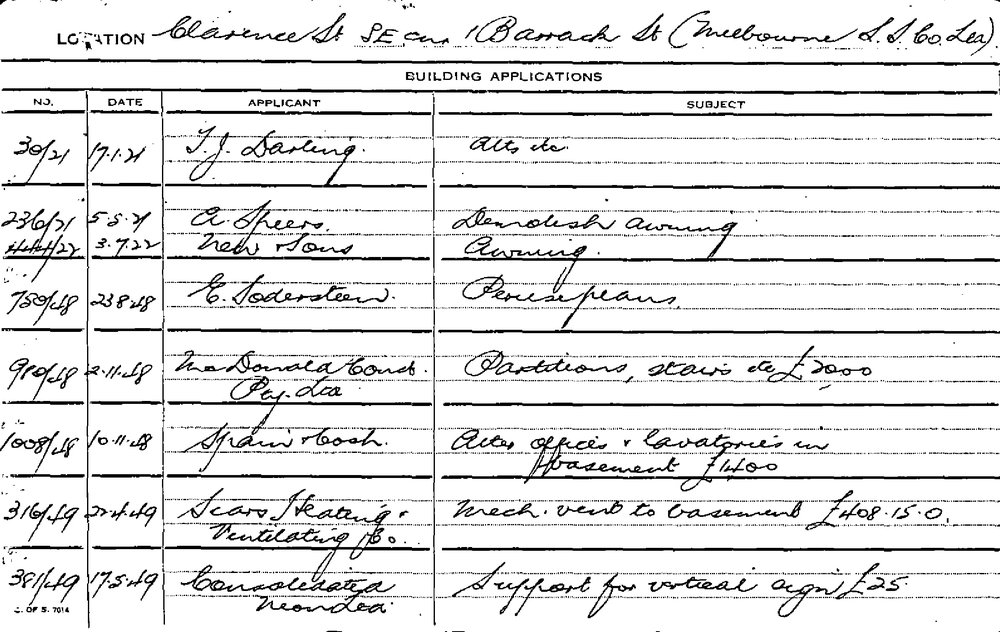 LOCATION Clarence St SE cnr Barrack St (Melbourne S.S. Co. Ltd)
BUILDING APPLICATIONS
NO. DATE APPLICANT SUBJECT
30/21 17.1.21 T. J. Darling. Alts etc.
236/21 5.5.21 A. Speers. Demolish awning
/22 3.7.22 New & Sons Awning.
750/48 23.8.48 E. Sodersteen. Peruse plans.
910/48 2.11.48 McDonald Const. Partitions, stairs etc £2000
Pty. Ltd
1008/48 10.11.48 Spain & Cosh. Alter offices & lavatories in
basement £1400
316/49 22.4.49 Scars Heating & Mech. vent to basement £408.15.0.
Ventilating Co.
381/49 17.5.49 Consolidated Support for vertical sign £25
Neon Ltd.
C. OF S. 7014